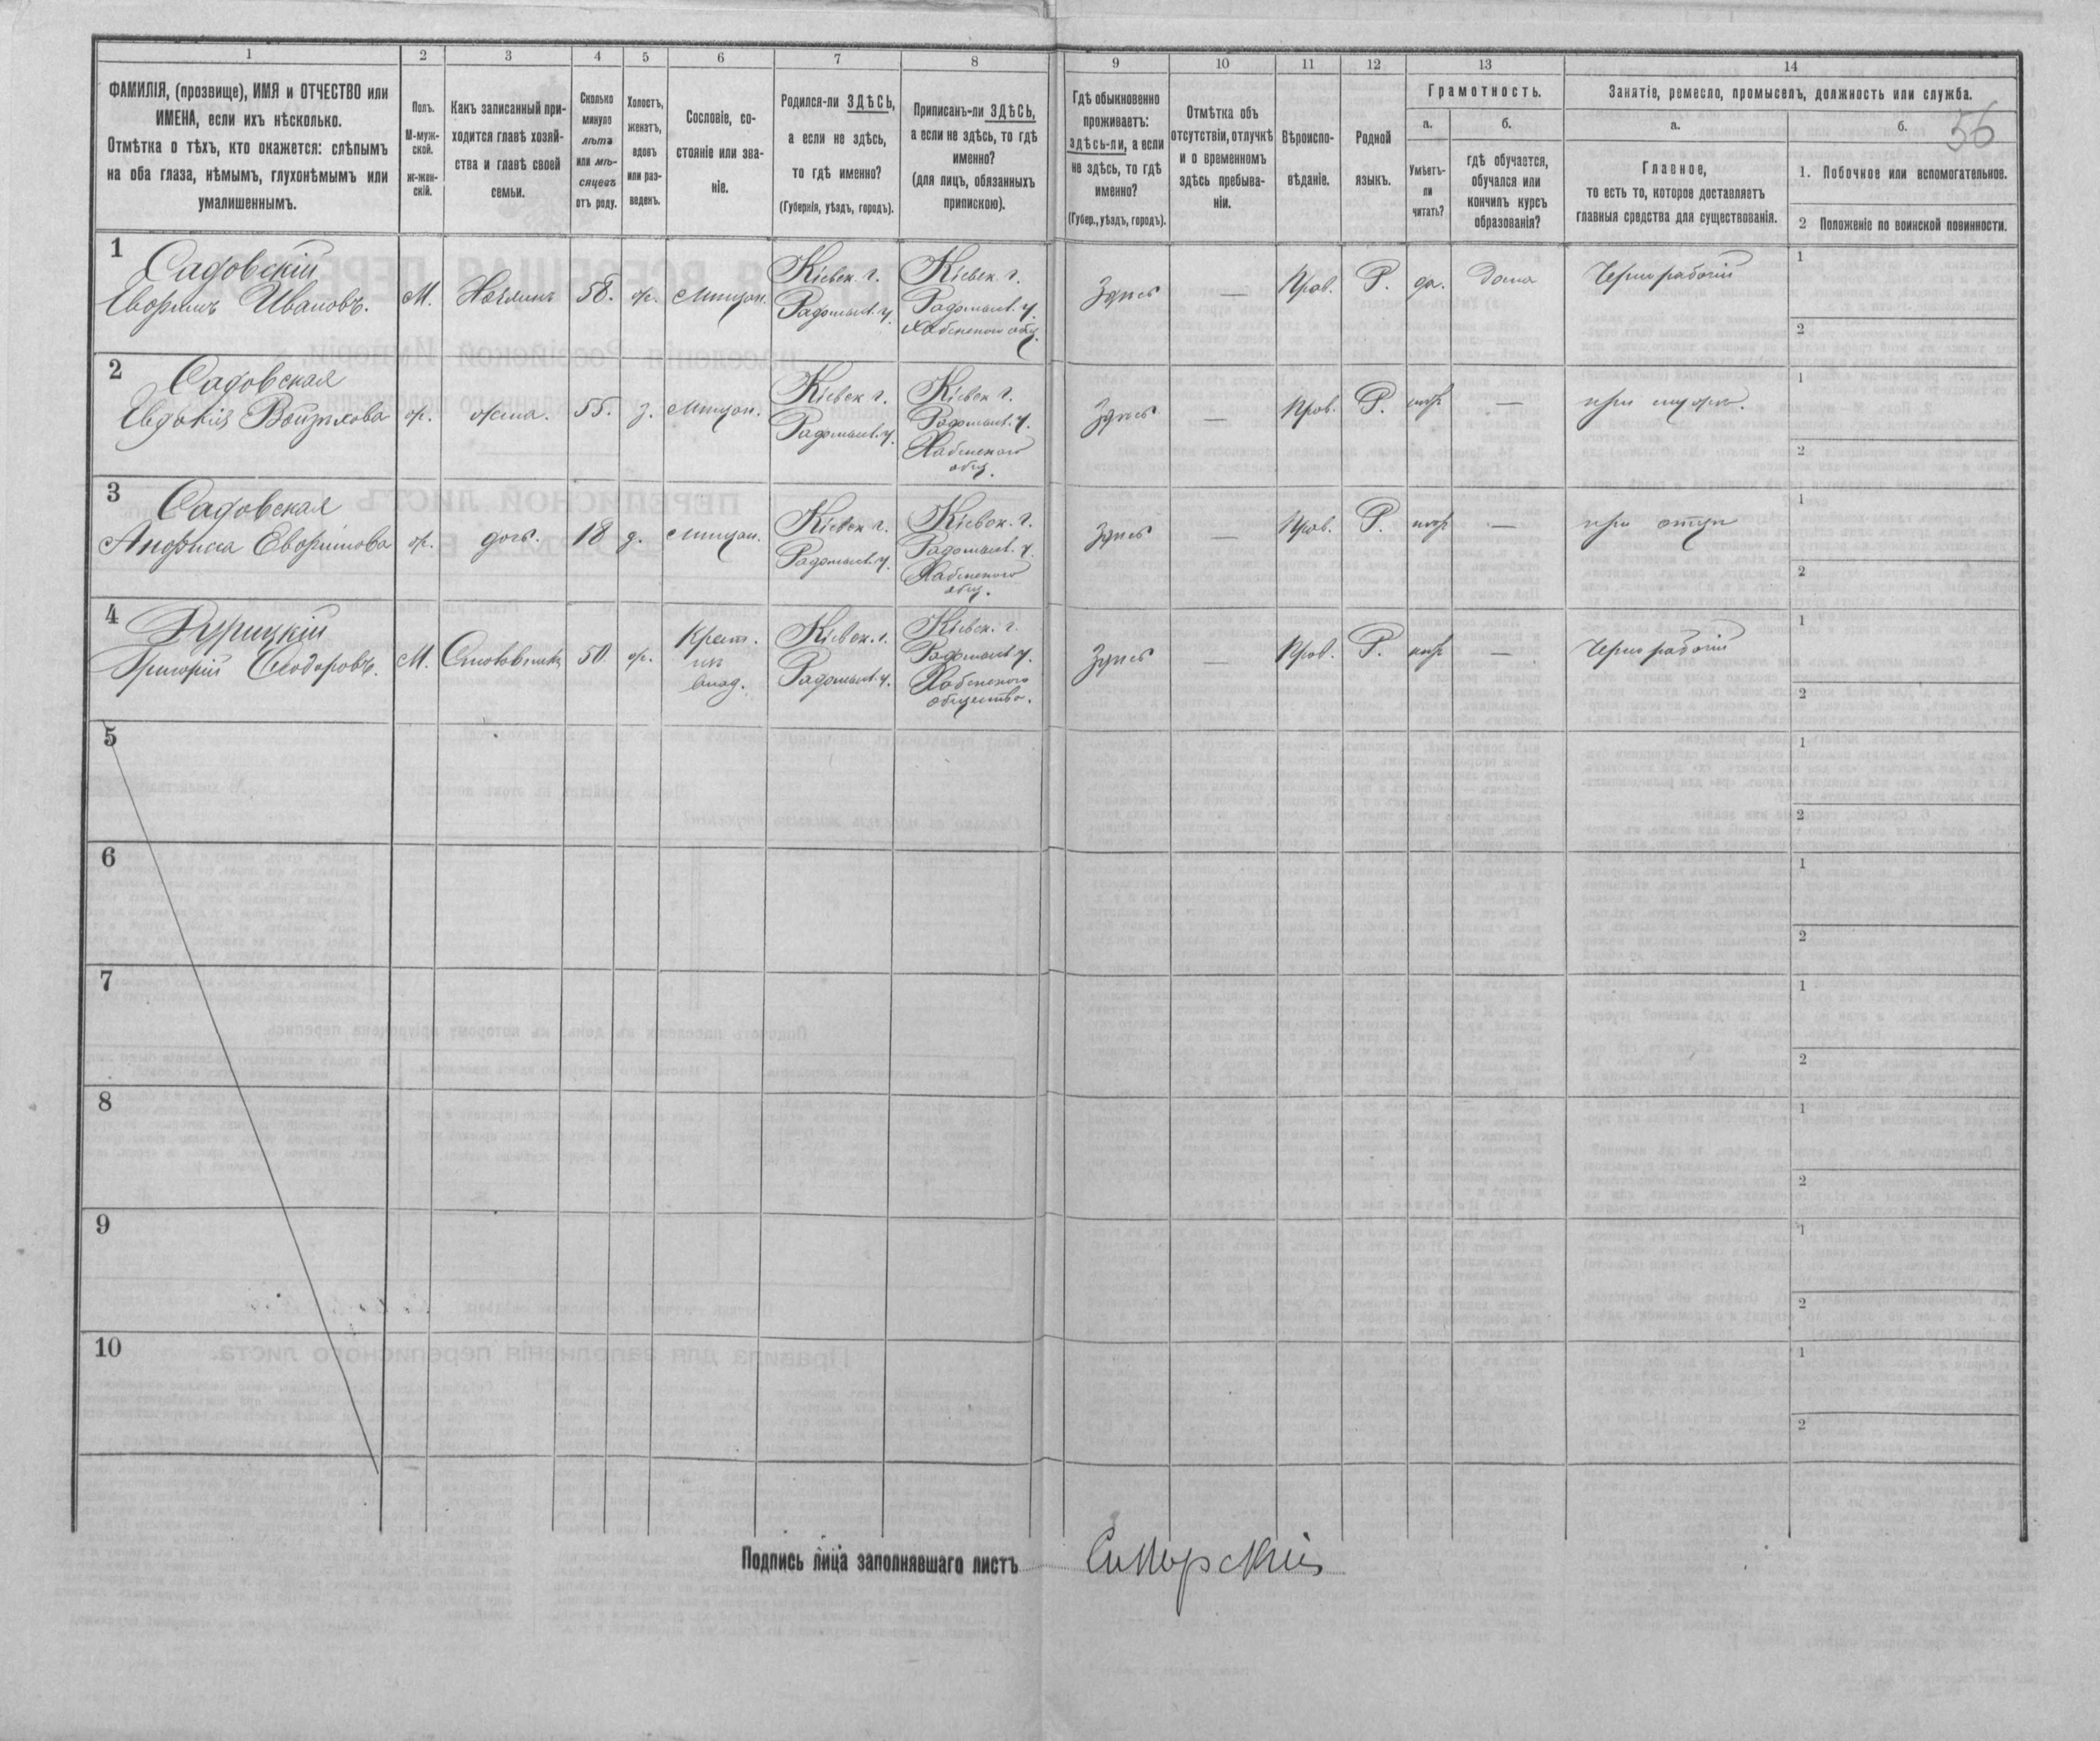 1 2 3 4 5 6 7 8 9 10 11 12 13 14
ФАМИЛІЯ, (прозвище), ИМЯ и ОТЧЕСТВО или
ИМЕНА, если ихъ нѣсколько.
Отмѣтка о тѣхъ, кто окажется: слѣпымъ
на оба глаза, нѣмымъ, глухонѣмымъ или
умалишеннымъ.
Полъ.
М-муж-
ской.
ж-жен-
скій.
Какъ записанный при-
ходится главѣ хозяй-
ства и главѣ своей
семьи.
Сколько
минуло
лѣтъ
или мѣ-
сяцевъ
отъ роду.
Холостъ,
женатъ,
вдовъ
или раз-
веденъ.
Сословіе, со-
стояніе или зва-
ніе.
Родился-ли ЗДѢСЬ,
а если не здѣсь,
то гдѣ именно?
(Губернія, уѣздъ, городъ).
Приписанъ-ли ЗДѢСЬ,
а если не здѣсь, то гдѣ
именно?
(для лицъ, обязанныхъ
припискою).
Гдѣ обыкновенно
проживаетъ:
здѣсь-ли, а если
не здѣсь, то гдѣ
именно?
(Губер., уѣздъ, городъ).
Отмѣтка объ
отсутствіи, отлучкѣ
и о временномъ
здѣсь пребыва-
ніи.
Вѣроиспо-
вѣданіе.
Родной
языкъ.
Грамотность.
а.
Умѣетъ-
ли
читать?
б.
гдѣ обучается,
обучался или
кончилъ курсъ
образованія?
Занятіе, ремесло, промыселъ, должность или служба.
а.
Главное,
то есть то, которое доставляетъ
главныя средства для существованія.
б.
56
1. Побочное или вспомогательное.
2 Положеніе по воинской повинности.
1
Садовскій
Ефимъ Ивановъ.
М.
Хозяинъ
58.
ж.
мищан.
Кіевск. г.
Радомысл. у.
Кіевск. г.
Радомысл. у.
Хабенского общ.
Здись
—
Прав.
Р.
да.
дома
Чернорабочій
1
2
2
Садовская
Евдокія
ж.
жена.
55.
з.
мищан.
Кіевск г.
Радомысл. у.
Кіевск г.
Радомысл. у.
Хабенского
общ.
Здись
—
Прав.
Р.
—
при мужи.
1
2
3
Садовская
ж.
дочь.
18
д.
мищан.
Кіевск г.
Радомысл. у.
Кіевск. г.
Радомысл. у.
Хабенского
общ.
Здись
—
Прав.
Р.
—
при отци
1
2
4
Григорій Феодоровъ.
М.
50
ж.
Крест.
Кіевск. г.
Радомысл. у.
Кіевск. г.
Радомысл у.
Хабенского
общества.
Здись
—
Прав.
Р.
—
Чернорабочій
1
2
5
1
2
6
1
2
7
1
2
8
1
2
9
1
2
10
1
2
Подпись лица заполнявшаго листъ Сикорскій